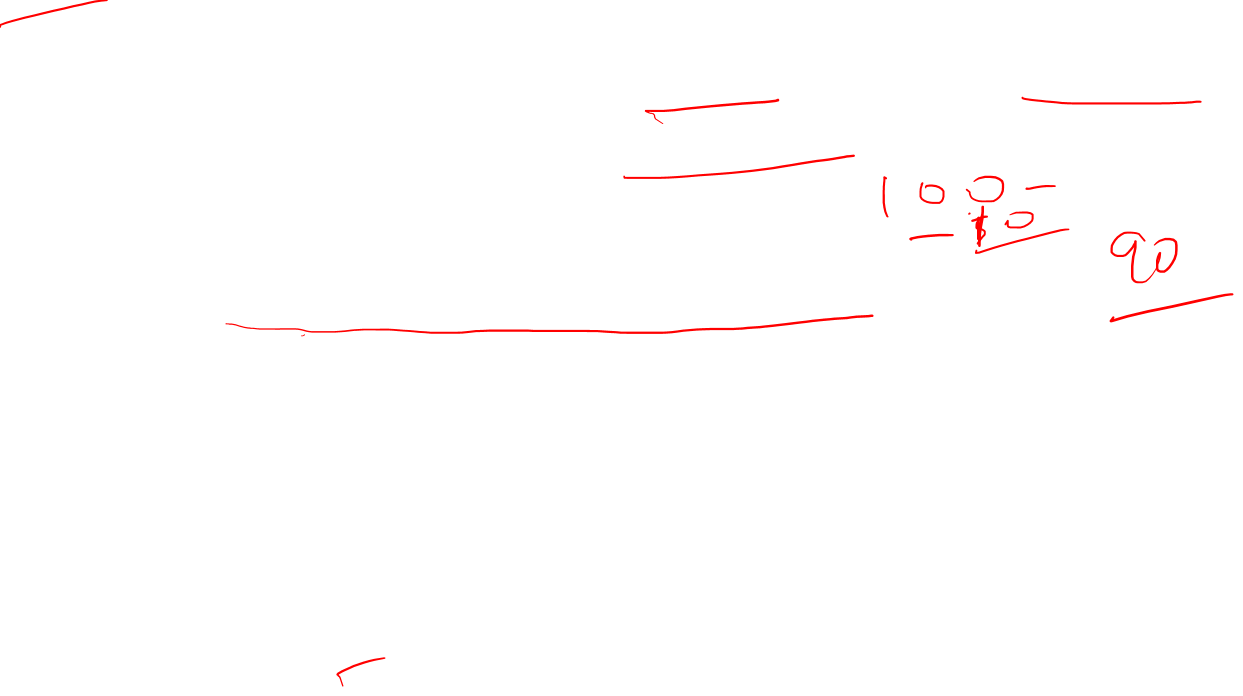 100 -
10
90